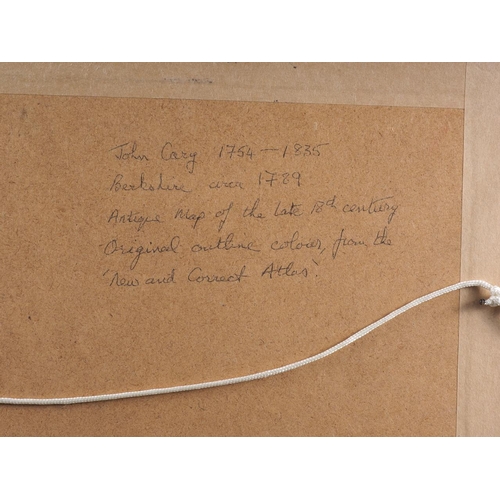 John Cary 1754 — 1835
Berkshire circa 1789
Antique Map of the late 18th century
Original outline colour, from the
'New and Correct Atlas'.